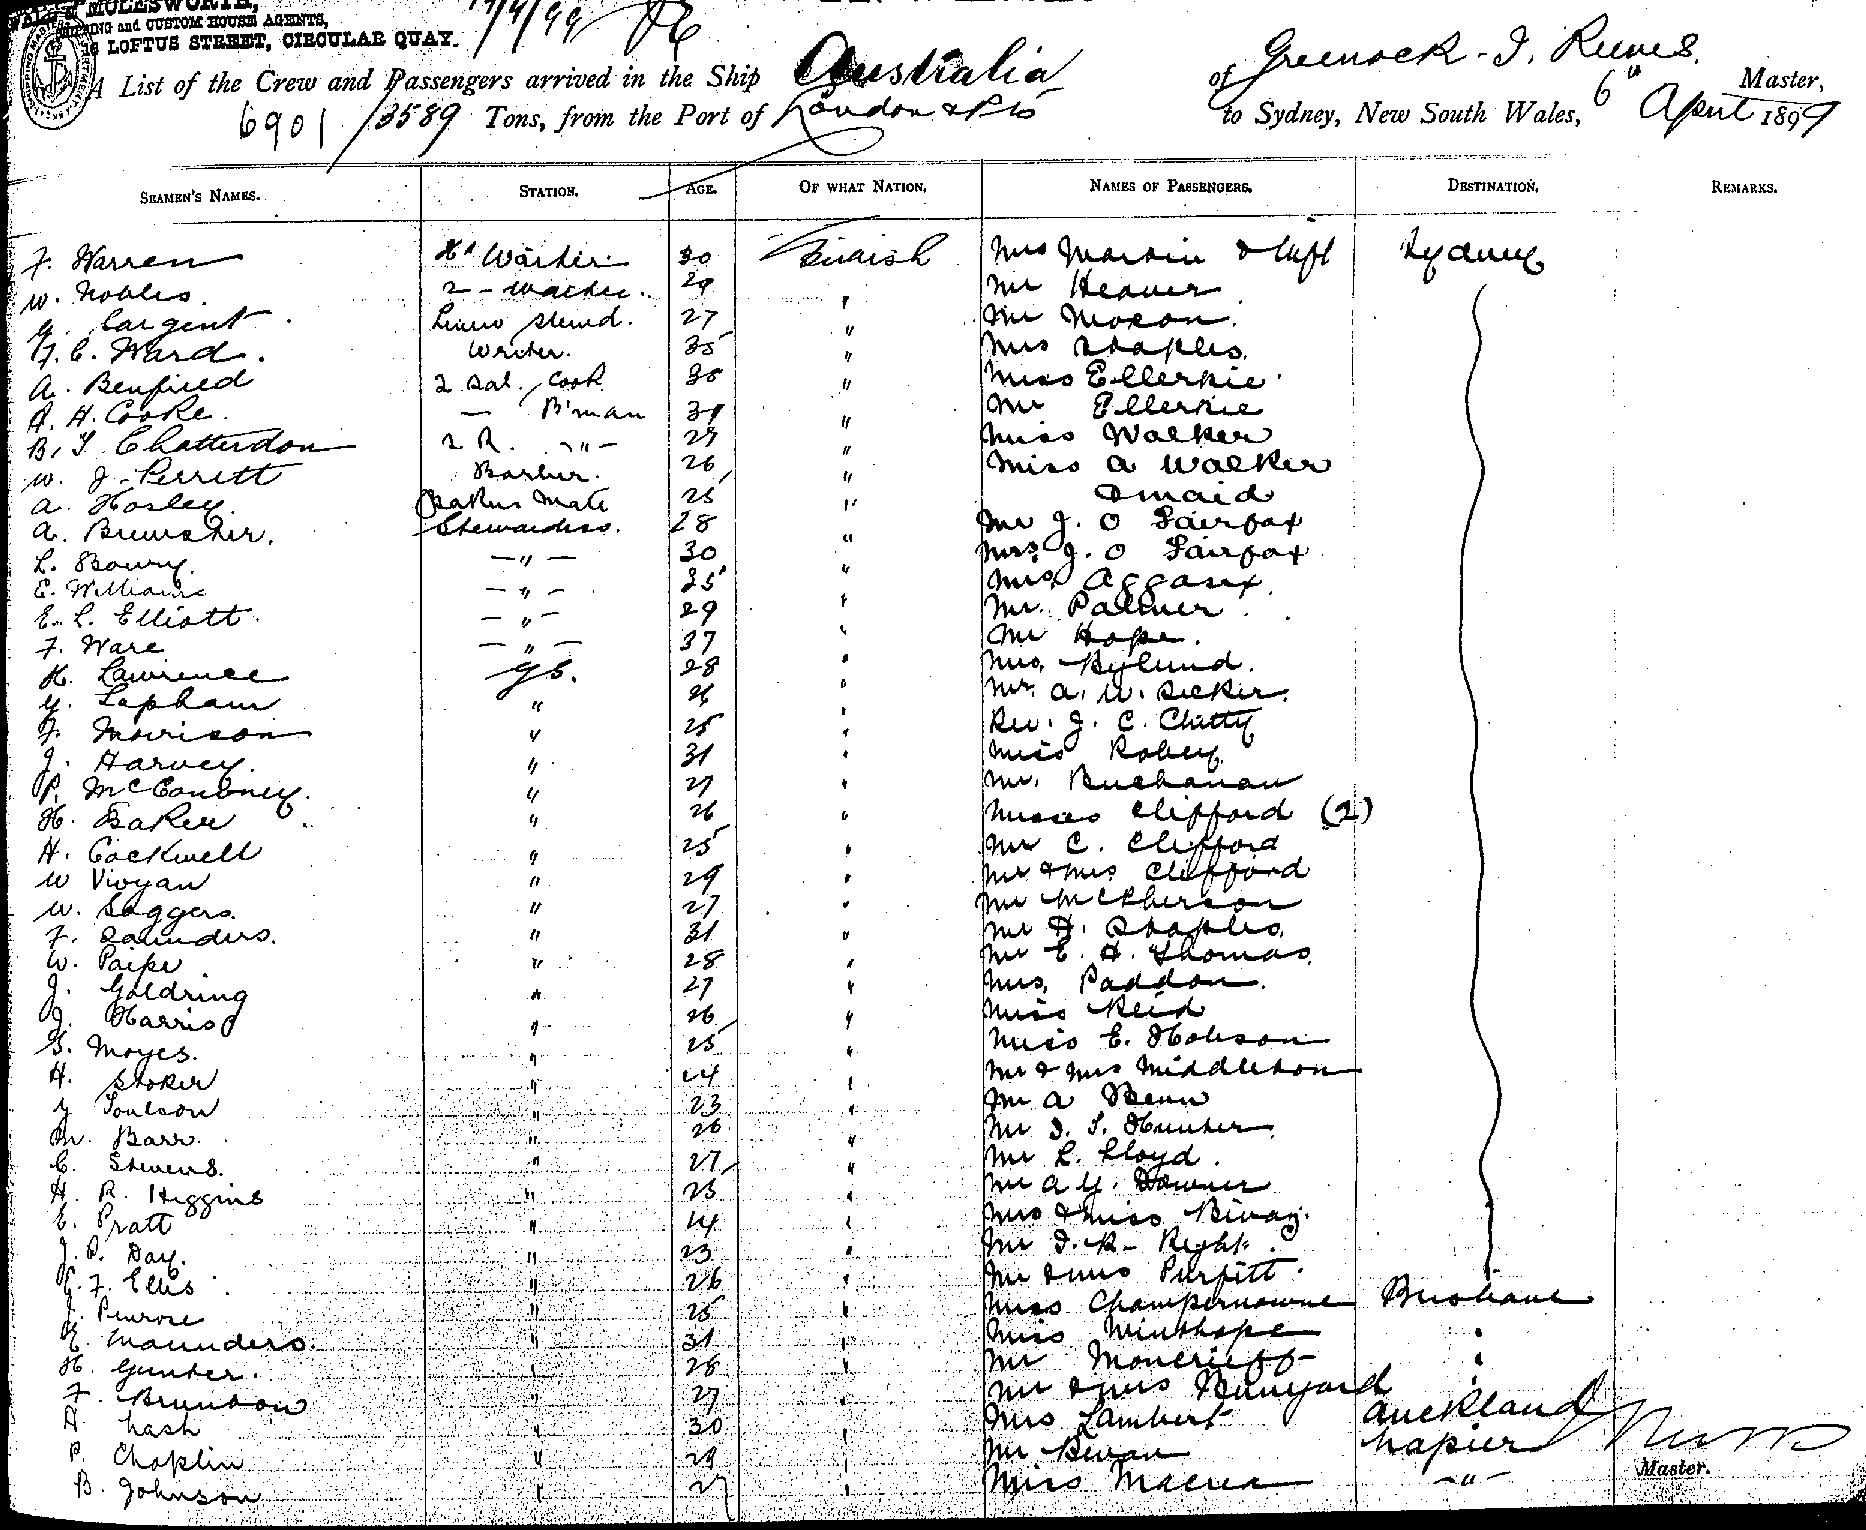 MOLESWORTH,
SHIPPING and CUSTOM HOUSE AGENTS,
LOFTUS STREET, CIRCULAR QUAY.
A List of the Crew and Passengers arrived in the Ship Australia of Greenock - Master,
6901 / 3589 Tons, from the Port of London & Pts to Sydney, New South Wales, 6th April 1899
SEAMEN'S NAMES. STATION. AGE. OF WHAT NATION. NAMES OF PASSENGERS. DESTINATION. REMARKS.
F. Warren 30 British Mrs Martin & Inft Sydney
W. Nobles. 29 " Mr Heaver
Sargent 27 " Mr Moxon.
F. C. Ward. Writer. 35 " Mrs Staples.
A. Benfield 2 Sal. Cook 35 " Miss Ellerkie
A. H. Cooke. — B'man 39 " Mr Ellerkie
B. T. Chatterdon 2 R. —"— 29 " Miss Walker
W. J. Perrett Barber. 26 " Miss A Walker
A. Hosley. Bakers Mate 25 " & maid
A. Brewster. Stewardess. 28 " Mr J. O Fairfax
L. Boury. —"— 30 " Mrs. J. O Fairfax
E. Williams —"— 35 " Mrs
E. L. Elliott. —"— 29 " Mr. Palmer
F. Ware —"— 37 " Mr Hope.
H. Lawrence GS. 28 " Mrs. Rylund.
G. Lapham " 26 " Mr. A. W. Sicker.
F. Morrison " 25 " Rev. J. C. Chitty
J. Harvey. " 31 " Miss Robey
P. McConbney. " 27 " Mr. Buchanan
H. Baker " 26 " Misses Clifford (2)
H. Cockwell " 25 " Mr C. Clifford
W Vivyan " 29 " Mr & Mrs Clifford
W. Saggers. " 27 " Mr McPherson
F. Saunders. " 31 " Mr H. Staples.
W. Paipe " 28 " Mr E. H. Thomas
J. Goldring " 27 " Mrs. Paddon.
J. Harris " 26 " Miss Reid
G. Moyes. " 25 " Miss E. Hobson
H. Stoker " 24 " Mr & Mrs Middleton
G Toulson " 23 " Mr A Benn
M. Barr. " 26 " Mr D. S. Hunter.
C. Stevens. " 27 " Mr L. Lloyd.
H. R. Higgins " 25 " Mr A G. Downer
E. Pratt " 24 " Mrs & Miss
J. P. Day. " 23 " Mr D. R. Right.
C. F. Ellis " 26 " Mr & Mrs Purfitt.
J. Penrose " 25 " Miss Champernowne Brisbane
E. Maunders. " 31 " Miss Winthope "
H. Gunter. " 28 " Mr Moncrieff "
F. Brundon " 27 " Mr & Mrs Bunyard "
A Nash " 30 " Mrs Lambert Auckland
P Chaplin " 29 " Mr Bevan Napier
B. Johnson " 27 " Miss —"—
Master.